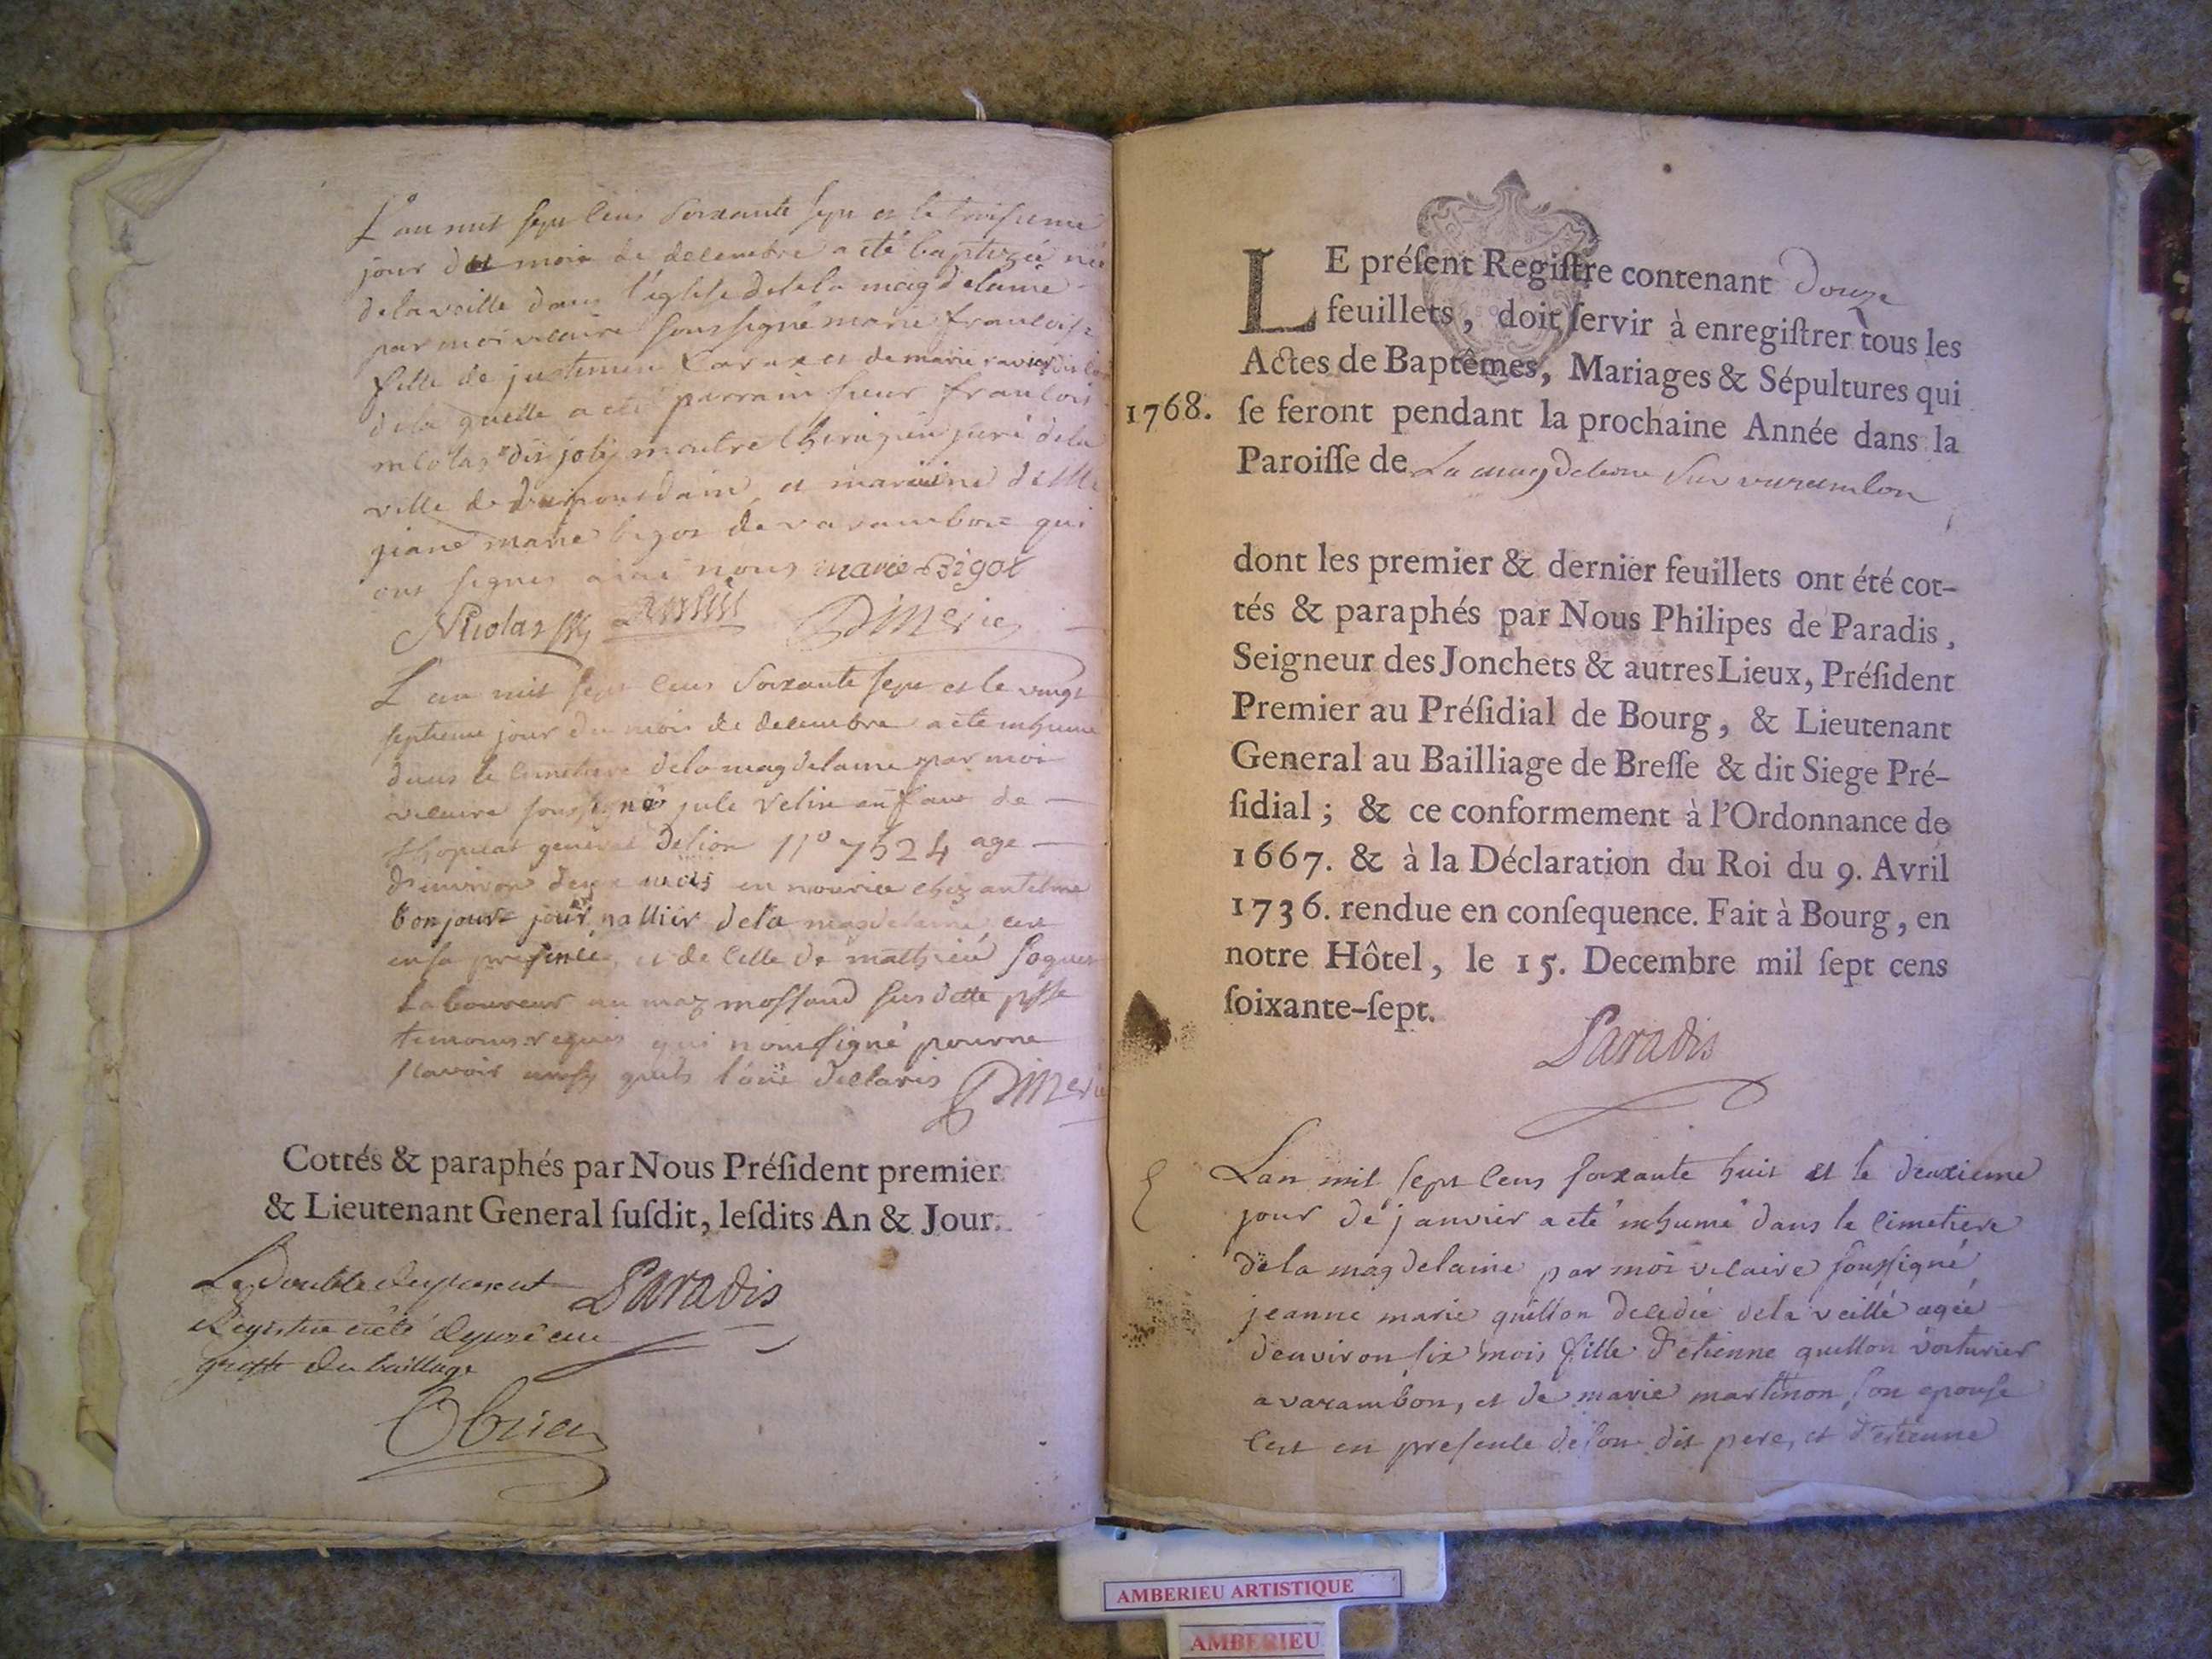 L'an mil sept cens soixante sept et le troisieme
jour du mois de decembre a eté baptizée née
de la veille dans l'eglise de la magdelaine
par moi vicaire soussigné marie francoise
fille de et de marie ravier
de la quelle a eté parrain sieur francois
nicolas dis joly maitre chirugien juré de la
ville de et maraine delle
jeane marie bigot de varambon qui
ont signes nous marie Bigot
Nicolas
L'an mil sept cens soixante sept et le vingt
septieme jour du mois de decembre a eté inhumé
dans le cimetiere de la magdelaine par moi
vicaire soussigné jule velin enfant de
l'hopital general de lion n° 7524 age
d'environ deux mois en nourice chez antelme
bonjour journallier de la magdelaine, cen
en sa presence, et de celle de mathieu
laboureur au maz mossaud susdette psse
temoins requis qui n'ont signé pour ne
scavoir quils l'ont declaris
Cottés & paraphés par Nous Préſident premier
& Lieutenant General ſuſdit, leſdits An & Jour.
Le double du present Paradis
Registre a eté deposé au
greffe du bailliage
1768.
LE préſent Regiſtre contenant douze
feuillets, doit ſervir à enregiſtrer tous les
Actes de Baptêmes, Mariages & Sépultures qui
ſe feront pendant la prochaine Année dans la
Paroiſſe de La magdelene sur varambon
dont les premier & dernier feuillets ont été cot-
tés & paraphés par Nous Philipes de Paradis,
Seigneur des Jonchets & autres Lieux, Préſident
Premier au Préſidial de Bourg, & Lieutenant
General au Bailliage de Breſſe & dit Siege Pré-
ſidial ; & ce conformement à l'Ordonnance de
1667. & à la Déclaration du Roi du 9. Avril
1736. rendue en conſequence. Fait à Bourg, en
notre Hôtel, le 15. Decembre mil ſept cens
ſoixante-ſept.
Paradis
L'an mil sept cens soixante huit et le deuxieme
jour de janvier a eté inhumé dans le cimetiere
de la magdelaine par moi vicaire soussigné
jeanne marie guillon decedée de la veille agée
d'environ six mois fille d'etienne guillon voiturier
a varambon, et de marie martinon son epouse
cest en presence de son dit pere, et d'etienne
AMBERIEU ARTISTIQUE
AMBERIEU